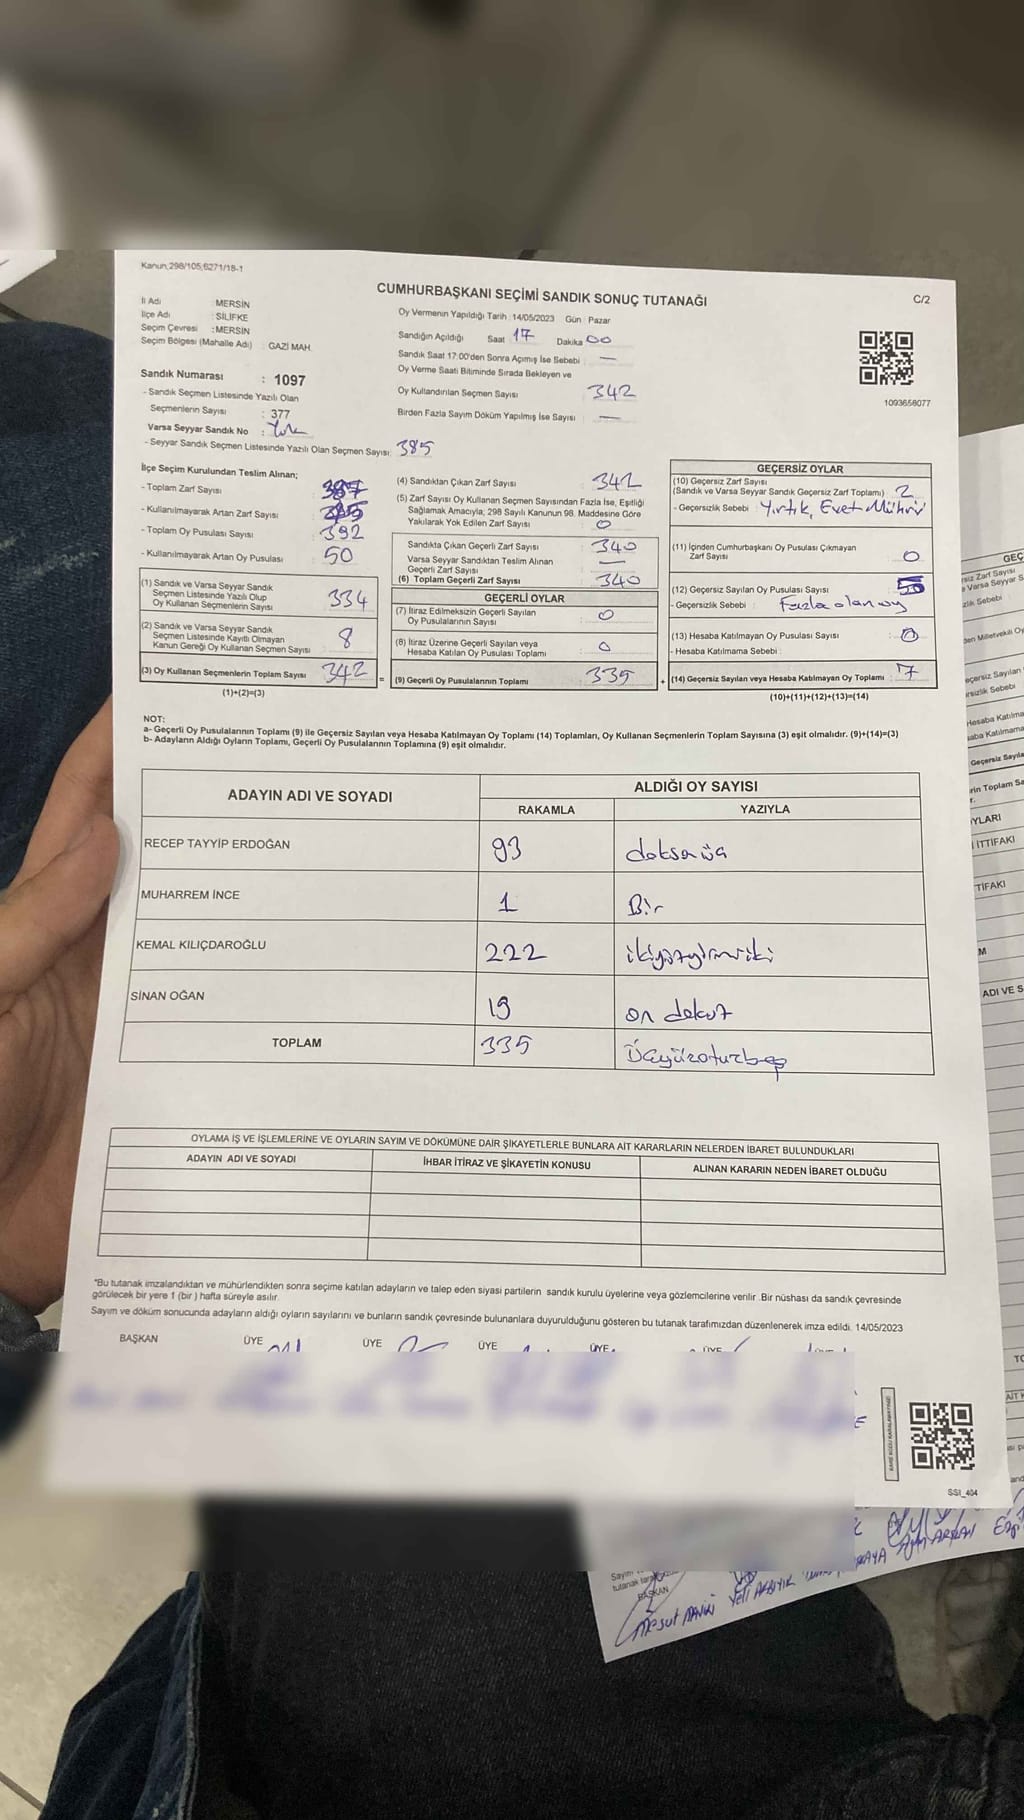 Kanun;298/105;6271/18-1
CUMHURBAŞKANI SEÇİMİ SANDIK SONUÇ TUTANAĞI
C/2
İl Adı : MERSİN
İlçe Adı : SİLİFKE
Seçim Çevresi : MERSİN
Seçim Bölgesi (Mahalle Adı) : GAZİ MAH.
Sandık Numarası : 1097
- Sandık Seçmen Listesinde Yazılı Olan
Seçmenlerin Sayısı : 377
Varsa Seyyar Sandık No : Yok
- Seyyar Sandık Seçmen Listesinde Yazılı Olan Seçmen Sayısı: 385
Oy Vermenin Yapıldığı Tarih : 14/05/2023 Gün : Pazar
Sandığın Açıldığı Saat 17 Dakika 00
Sandık Saat 17:00'den Sonra Açımış İse Sebebi : —
Oy Verme Saati Bitiminde Sırada Bekleyen ve
Oy Kullandırılan Seçmen Sayısı : 342
Birden Fazla Sayım Döküm Yapılmış İse Sayısı : —
1093658077
İlçe Seçim Kurulundan Teslim Alınan;
- Toplam Zarf Sayısı :
- Kullanılmayarak Artan Zarf Sayısı :
- Toplam Oy Pusulası Sayısı : 392
- Kullanılmayarak Artan Oy Pusulası : 50
(1) Sandık ve Varsa Seyyar Sandık
Seçmen Listesinde Yazılı Olup
Oy Kullanan Seçmenlerin Sayısı : 334
(2) Sandık ve Varsa Seyyar Sandık
Seçmen Listesinde Kayıtlı Olmayan
Kanun Gereği Oy Kullanan Seçmen Sayısı : 8
(3) Oy Kullanan Seçmenlerin Toplam Sayısı : 342
(1)+(2)=(3)
(4) Sandıktan Çıkan Zarf Sayısı : 342
(5) Zarf Sayısı Oy Kullanan Seçmen Sayısından Fazla İse, Eşitliği
Sağlamak Amacıyla, 298 Sayılı Kanunun 98. Maddesine Göre
Yakılarak Yok Edilen Zarf Sayısı : 0
Sandıkta Çıkan Geçerli Zarf Sayısı : 340
Varsa Seyyar Sandıktan Teslim Alınan
Geçerli Zarf Sayısı : —
(6) Toplam Geçerli Zarf Sayısı : 340
GEÇERLİ OYLAR
(7) İtiraz Edilmeksizin Geçerli Sayılan
Oy Pusulalarının Sayısı : 0
(8) İtiraz Üzerine Geçerli Sayılan veya
Hesaba Katılan Oy Pusulası Toplamı : 0
= (9) Geçerli Oy Pusulalarının Toplamı : 335
GEÇERSİZ OYLAR
(10) Geçersiz Zarf Sayısı
(Sandık ve Varsa Seyyar Sandık Geçersiz Zarf Toplamı) : 2
- Geçersizlik Sebebi : Yırtık, Evet Mührü
(11) İçinden Cumhurbaşkanı Oy Pusulası Çıkmayan
Zarf Sayısı : 0
(12) Geçersiz Sayılan Oy Pusulası Sayısı :
- Geçersizlik Sebebi : Fazla olan oy
(13) Hesaba Katılmayan Oy Pusulası Sayısı :
- Hesaba Katılmama Sebebi :
+ (14) Geçersiz Sayılan veya Hesaba Katılmayan Oy Toplamı : 7
(10)+(11)+(12)+(13)=(14)
NOT:
a- Geçerli Oy Pusulalarının Toplamı (9) ile Geçersiz Sayılan veya Hesaba Katılmayan Oy Toplamı (14) Toplamları, Oy Kullanan Seçmenlerin Toplam Sayısına (3) eşit olmalıdır. (9)+(14)=(3)
b- Adayların Aldığı Oyların Toplamı, Geçerli Oy Pusulalarının Toplamına (9) eşit olmalıdır.
ADAYIN ADI VE SOYADI
ALDIĞI OY SAYISI
RAKAMLA YAZIYLA
RECEP TAYYİP ERDOĞAN 93 doksanüç
MUHARREM İNCE 1 Bir
KEMAL KILIÇDAROĞLU 222 ikiyüzyirmiiki
SİNAN OĞAN 19 on dokuz
TOPLAM 335 Üçyüzotuzbeş
OYLAMA İŞ VE İŞLEMLERİNE VE OYLARIN SAYIM VE DÖKÜMÜNE DAİR ŞİKAYETLERLE BUNLARA AİT KARARLARIN NELERDEN İBARET BULUNDUKLARI
ADAYIN ADI VE SOYADI İHBAR İTİRAZ VE ŞİKAYETİN KONUSU ALINAN KARARIN NEDEN İBARET OLDUĞU
*Bu tutanak imzalandıktan ve mühürlendikten sonra seçime katılan adayların ve talep eden siyasi partilerin sandık kurulu üyelerine veya gözlemcilerine verilir. Bir nüshası da sandık çevresinde
görülecek bir yere 1 (bir ) hafta süreyle asılır.
Sayım ve döküm sonucunda adayların aldığı oyların sayılarını ve bunların sandık çevresinde bulunanlara duyurulduğunu gösteren bu tutanak tarafımızdan düzenlenerek imza edildi. 14/05/2023
BAŞKAN ÜYE ÜYE ÜYE ÜYE ÜYE
SSI_404
BAŞKAN